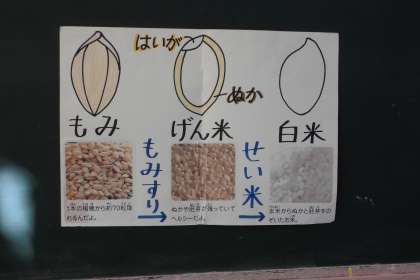 はいが
ぬか
もみ
げん米
白米
もみすり
せい米
1本の稲穂から約70粒
ぬかや胚芽が残っていて
ヘルシーだよ。
玄米からぬかと胚芽をの
ぞいたお米。